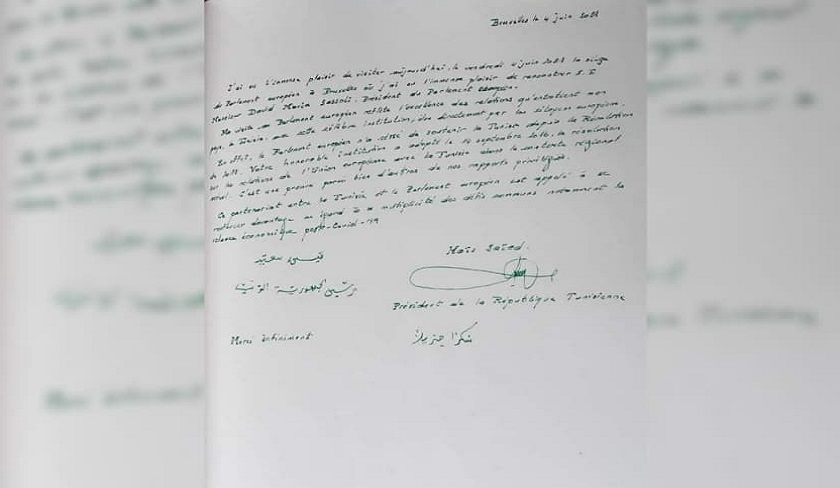 Bruxelles le 4 juin 2021
J'ai eu l'immense plaisir de visiter aujourd'hui, le vendredi 4 juin 2021 le siège
du Parlement européen à Bruxelles où j'ai eu l'immense plaisir de rencontrer S. E
Monsieur David Maria Sassoli, Président du Parlement européen.
Ma visite au Parlement européen reflète l'excellence des relations qu'entretient mon
pays, la Tunisie, avec cette célèbre institution, élue directement par les citoyens européens.
En effet, le Parlement européen n'a cessé de soutenir la Tunisie depuis la Révolution
de 2011. Votre honorable institution a adopté le 14 septembre 2016, la résolution
sur les relations de l'Union européenne avec la Tunisie dans le contexte régional
actuel. C'est une preuve parmi bien d'autres de nos rapports privilégiés.
Ce partenariat entre la Tunisie et le Parlement européen est appelé à se
renforcer davantage eu égard à la multiplicité des défis communs notamment la
relance économique post-Covid-19
قيس سعيد
Kaïs Saïed.
رئيس الجمهورية التونسية
Président de la République Tunisienne
Merci infiniment
شكرا جزيلا